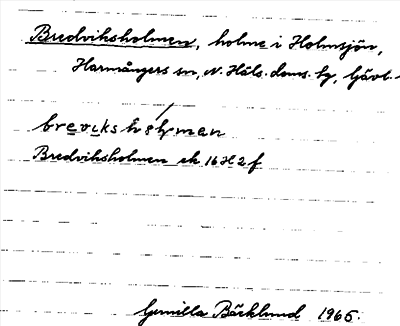 Bredviksholmen, holme i Holmsjön,
Harmångers sn, N. Häls. doms. hg, Gävl.
Bredviksholmen ek 16H2f
Gunilla Bäcklund 1965.